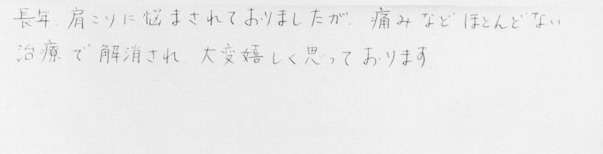 長年、肩こりに悩まされておりましたが、痛みなどほとんどない
治療で解消され、大変嬉しく思っております